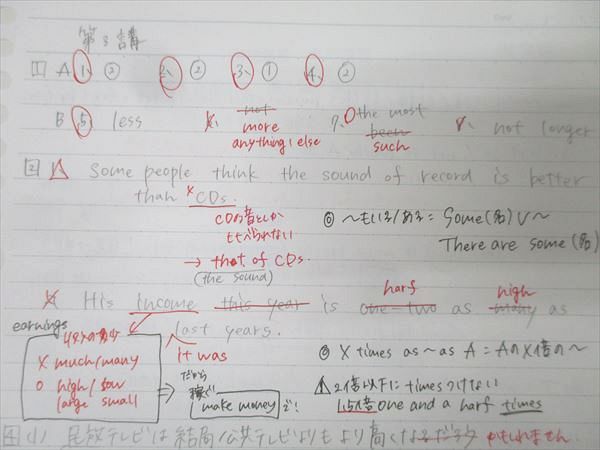 第3講
[1] A 1, ② 2, ② 3, ① 4, ②
B 5 less 6, not 7、 the most 8、 not longer
more been
anything else such
[2] 1 Some people think the sound of record is better
than CDs.
CDの音としか
比べられない
→ that of CDs.
(the sound)
◎ 〜もいる/ある = Some(名) V〜
There are some (名)
harf high
His income this year is one-two as many as
last years.
it was
earnings
X much/many
O high/low
large small
だから
make money
◎ X times as〜as A = AのX倍の〜
2倍以下にtimesつけない
1.5倍 one and a harf times
[4] (1) 民放テレビは結局公共テレビよりもより高くなるだろう かもしれません.